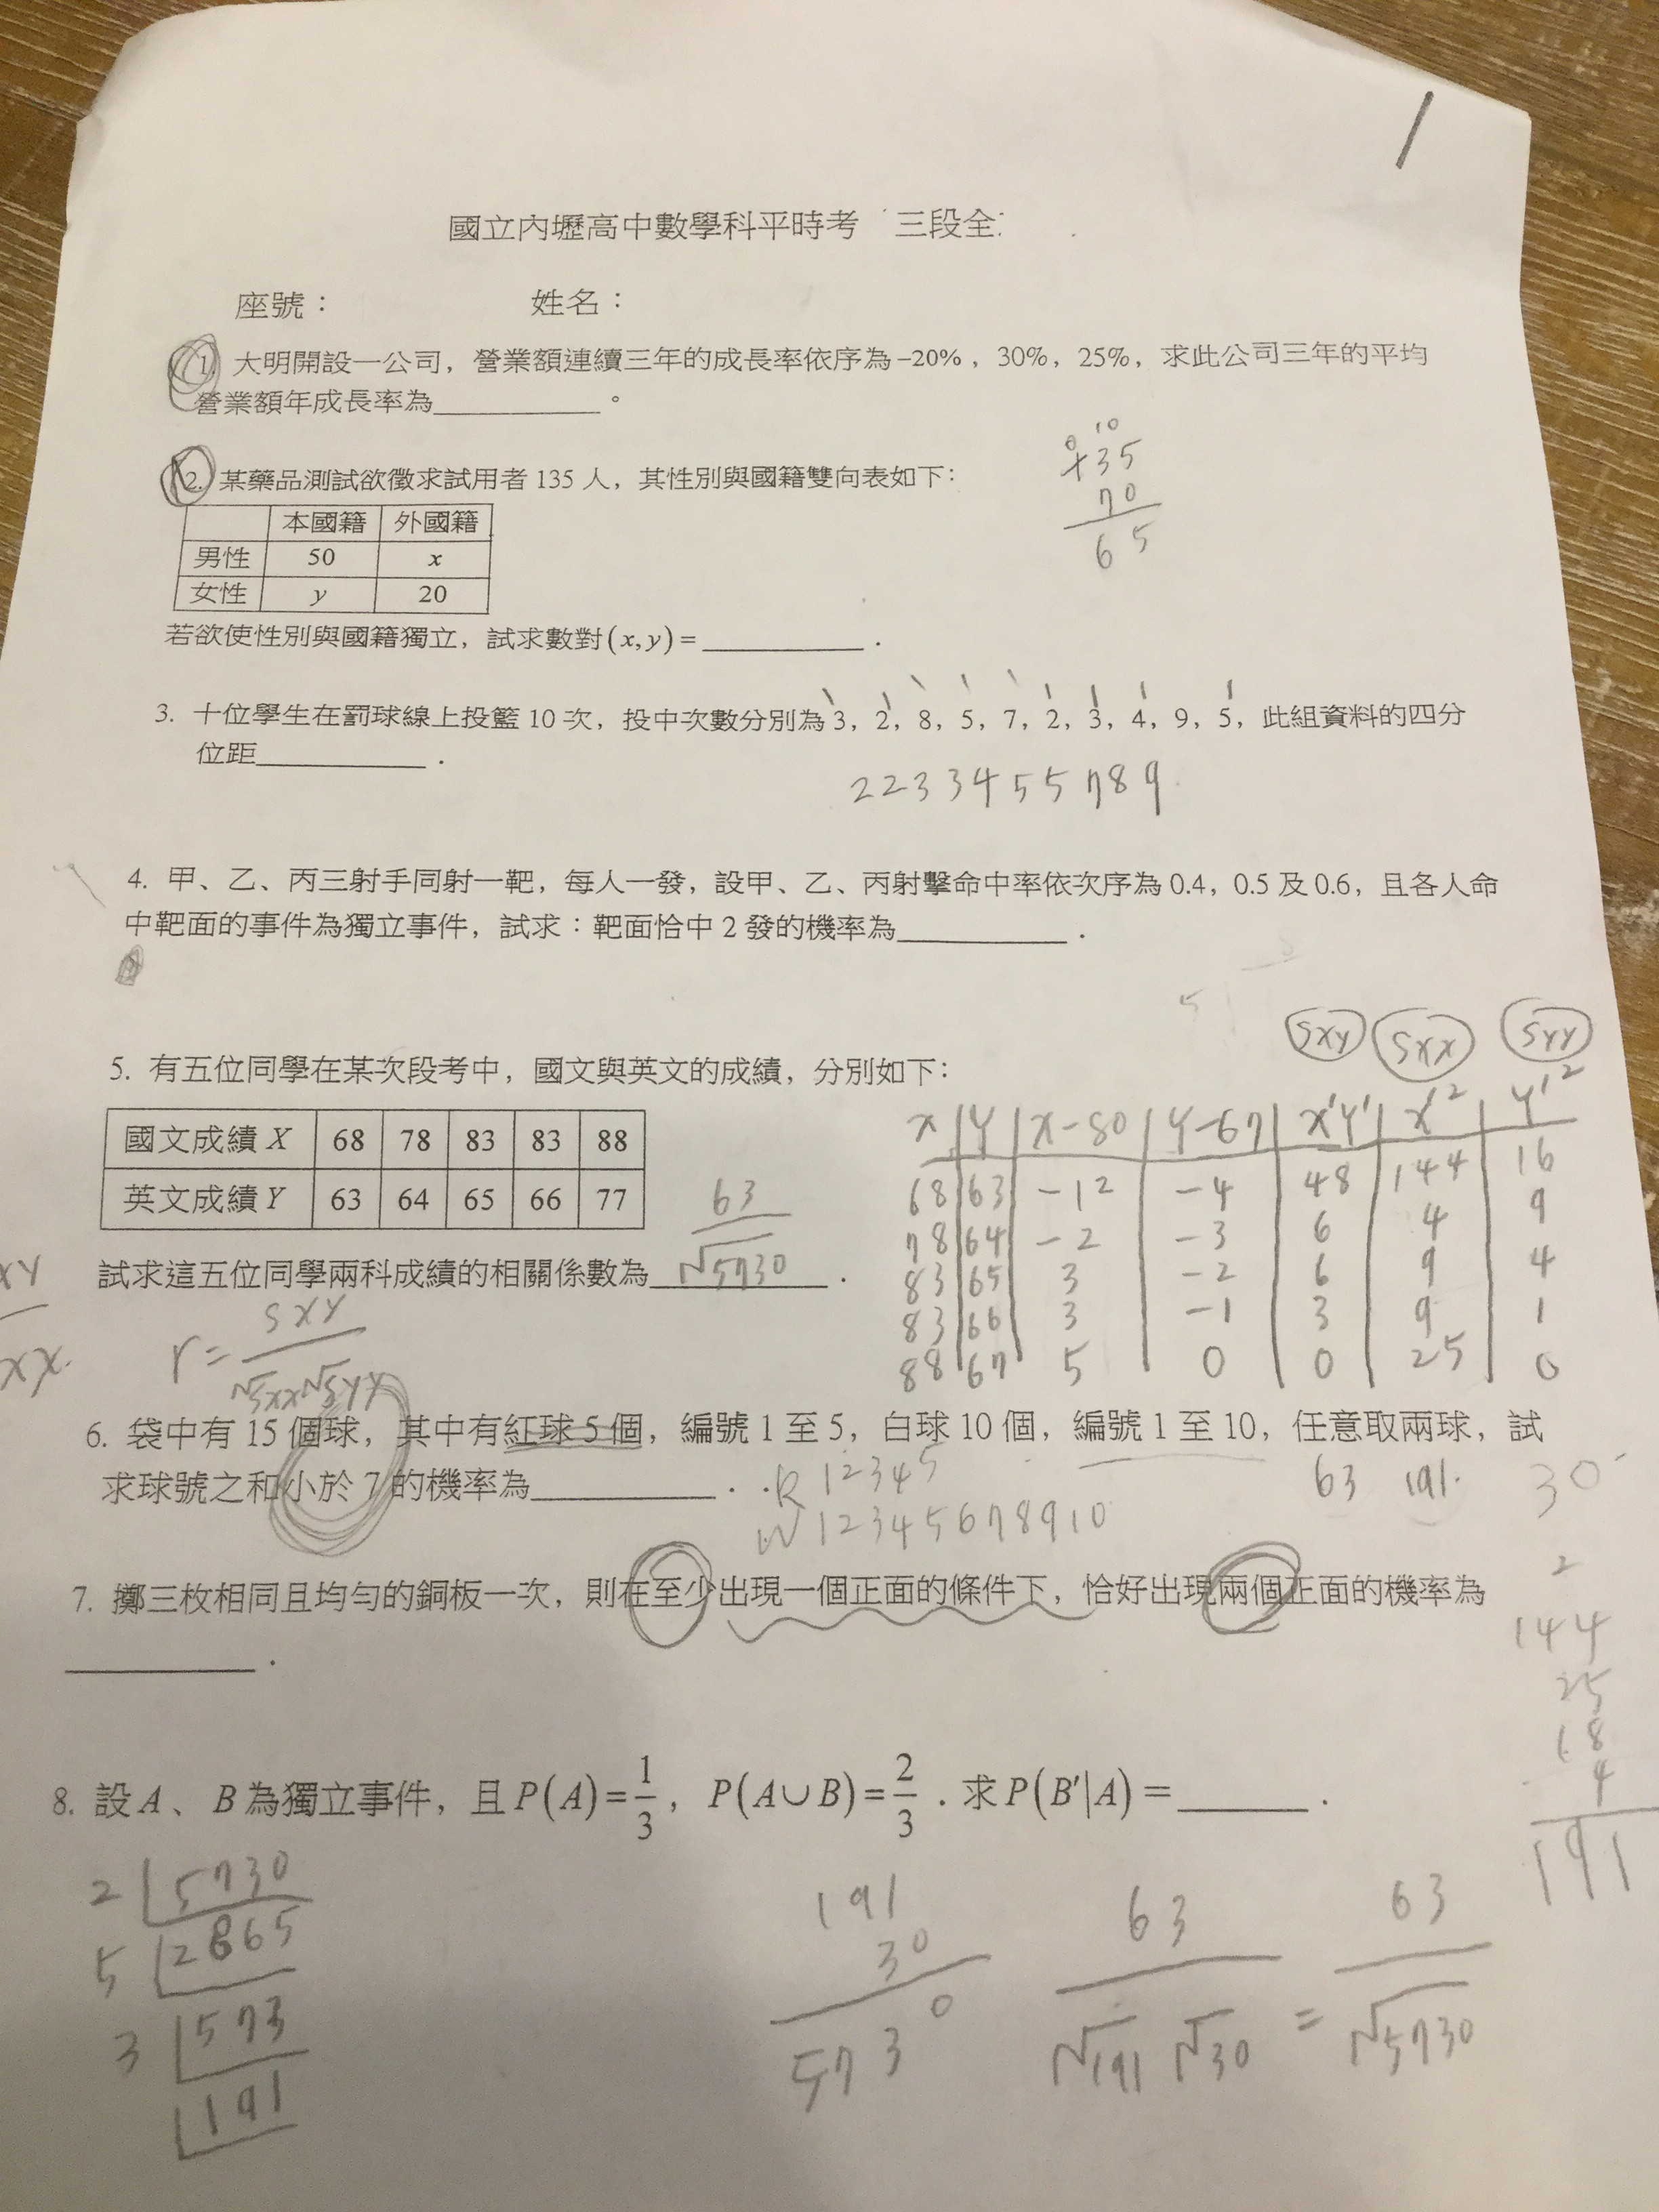 國立內壢高中數學科平時考 三段全
座號： 姓名：
1. 大明開設一公司，營業額連續三年的成長率依序為 -20%，30%，25%，求此公司三年的平均
營業額年成長率為＿＿＿＿＿。
2. 某藥品測試欲徵求試用者 135 人，其性別與國籍雙向表如下：
本國籍 外國籍
男性 50 x
女性 y 20
若欲使性別與國籍獨立，試求數對 (x,y) = ＿＿＿＿＿.
0 10
135
70
65
3. 十位學生在罰球線上投籃 10 次，投中次數分別為 3，2，8，5，7，2，3，4，9，5，此組資料的四分
位距＿＿＿＿＿.
2 2 3 3 4 5 5 7 8 9
4. 甲、乙、丙三射手同射一靶，每人一發，設甲、乙、丙射擊命中率依次序為 0.4，0.5 及 0.6，且各人命
中靶面的事件為獨立事件，試求：靶面恰中 2 發的機率為＿＿＿＿＿.
5. 有五位同學在某次段考中，國文與英文的成績，分別如下：
國文成績 X 68 78 83 83 88
英文成績 Y 63 64 65 66 77
試求這五位同學兩科成績的相關係數為 63/√5730 .
r = SXY/√SXX√SYY
XY
XX.
SXY SXX SYY
X Y X-80 Y-67 X'Y' X'² Y'²
68 63 -12 -4 48 144 16
78 64 -2 -3 6 4 9
83 65 3 -2 6 9 4
83 66 3 -1 3 9 1
88 67 5 0 0 25 0
63 191 30
6. 袋中有 15 個球，其中有紅球 5 個，編號 1 至 5，白球 10 個，編號 1 至 10，任意取兩球，試
求球號之和小於 7 的機率為＿＿＿＿＿.
R 1 2 3 4 5
W 1 2 3 4 5 6 7 8 9 10
7. 擲三枚相同且均勻的銅板一次，則在至少出現一個正面的條件下，恰好出現兩個正面的機率為
＿＿＿＿＿.
2
144
25
18
4
191
8. 設 A、B 為獨立事件，且 P(A)=1/3，P(A∪B)=2/3．求 P(B'|A) = ＿＿＿＿.
2 5730
5 2865
3 573
191
191
30
5730
63/√191 √30 = 63/√5730